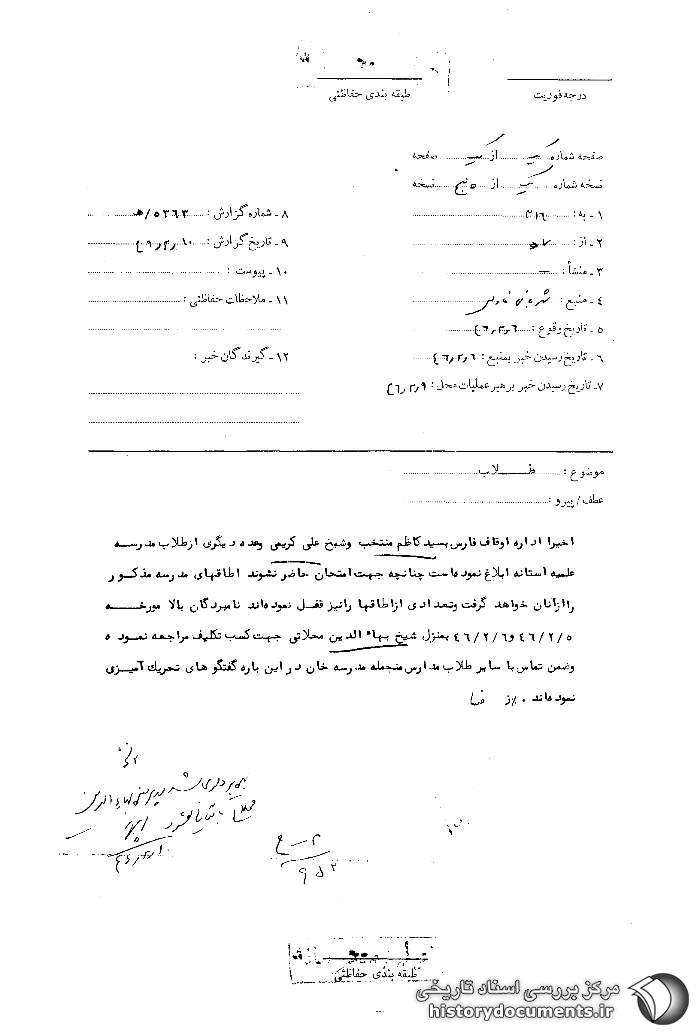 درجه فوریت
طبقه بندی حفاظتی
صفحه شماره یک از یک صفحه
نسخه شماره یک از ۵ نسخه
۱ - به : ۳۱۶
۲ - از :
۳ - منشأ :
۴ - منبع :
۵ - تاریخ وقوع : ۴۶٫۲٫۶
۶ - تاریخ رسیدن خبر بمنبع : ۴۶٫۲٫۶
۷ - تاریخ رسیدن خبر برهبر عملیات محل : ۴۶٫۲٫۹
۸ - شماره گزارش : ۵۳۶۳/ﻫ
۹ - تاریخ گزارش : ۴۶٫۲٫۱۰
۱۰ - پیوست :
۱۱ - ملاحظات حفاظتی :
۱۲ - گیرندگان خبر :
موضوع : طلاب
عطف / پیرو :
اخیرا اداره اوقاف فارس بسید کاظم منتخب وشیخ علی کریمی وعده دیگری از طلاب مدرسه
علمیه استانه ابلاغ نموده است چنانچه جهت امتحان حاضر نشوند اطاقهای مدرسه مذکور
را ازانان خواهد گرفت وتعدادی ازاطاقها رانیز قفل نموده‌اند نامبردگان بالا مورخه
۴۶/۲/۵ و ۴۶/۲/۶ بمنزل شیخ بهاءالدین محلاتی جهت کسب تکلیف مراجعه نموده
وضمن تماس با سایر طلاب مدارس منجمله مدرسه خان در این باره گفتگوهای تحریک آمیزی
نموده‌اند .
طبقه بندی حفاظتی
مرکز بررسی اسناد تاریخی
historydocuments.ir